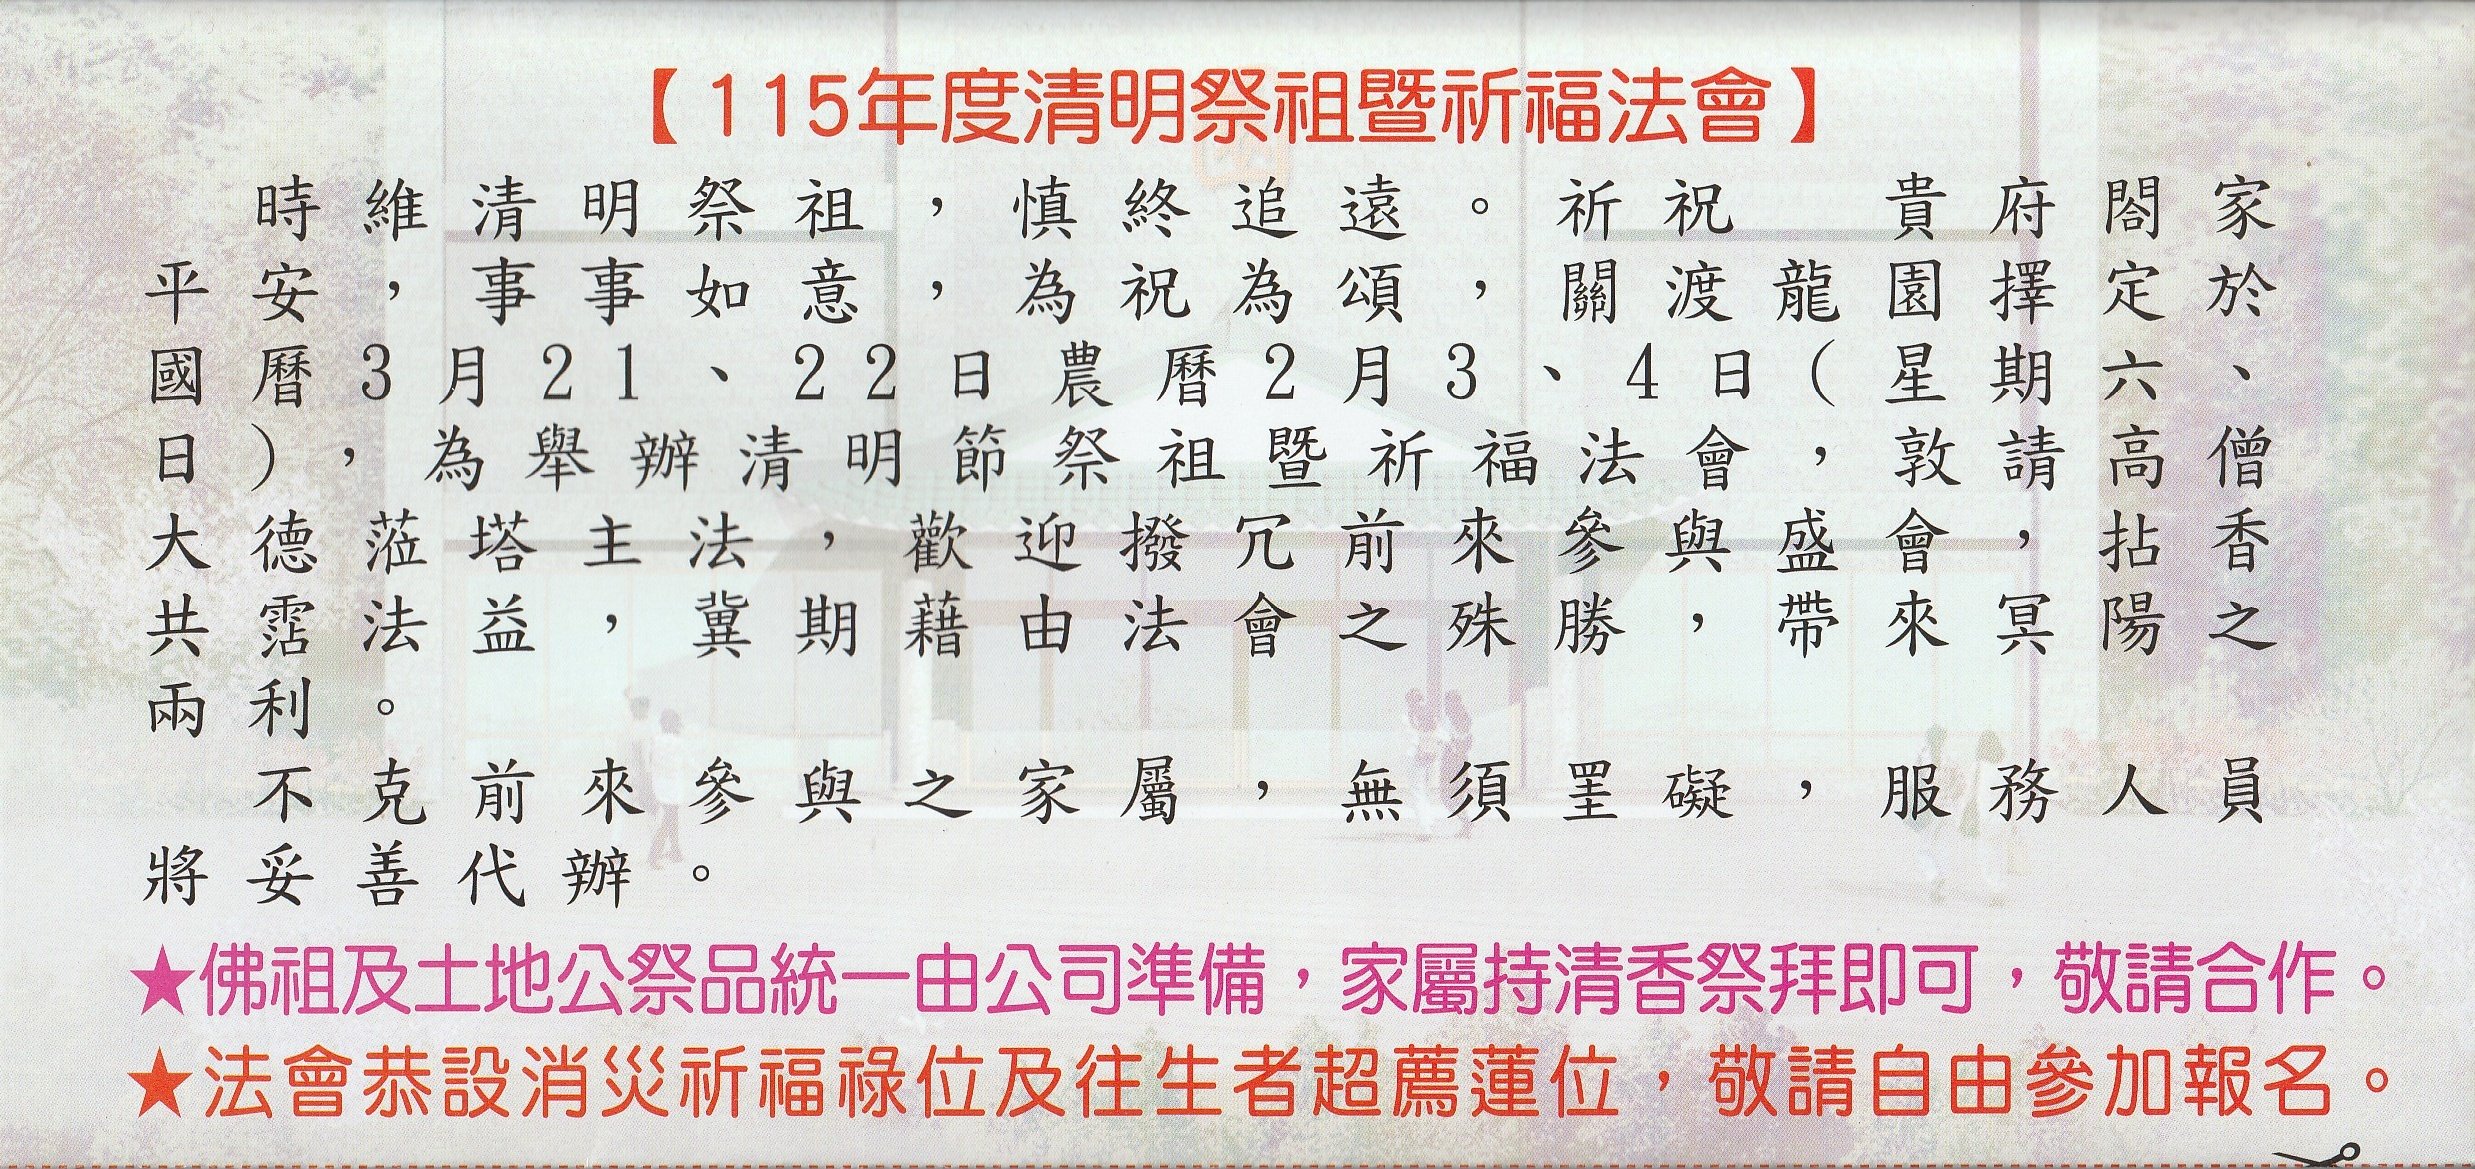 【115年度清明祭祖暨祈福法會】
時維清明祭祖，慎終追遠。祈祝　貴府閤家
平安，事事如意，為祝為頌，關渡龍園擇定於
國曆3月21、22日農曆2月3、4日（星期六、
日），為舉辦清明節祭祖暨祈福法會，敦請高僧
大德蒞塔主法，歡迎撥冗前來參與盛會，拈香
共霑法益，冀期藉由法會之殊勝，帶來冥陽之
兩利。
不克前來參與之家屬，無須罣礙，服務人員
將妥善代辦。
★佛祖及土地公祭品統一由公司準備，家屬持清香祭拜即可，敬請合作。
★法會恭設消災祈福祿位及往生者超薦蓮位，敬請自由參加報名。